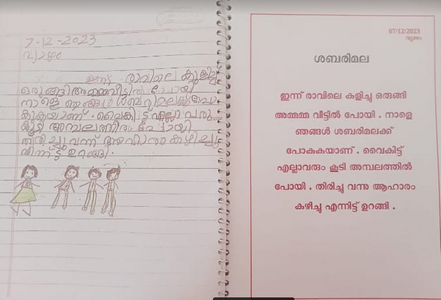 7-12-2023
വ്യാഴം
ഇന്ന് രാവിലെ കുളിച്ചു
ഒരുങ്ങി അമ്മമ്മ വീട്ടിൽ പോയി
നാളെ ഞങ്ങൾ ശബരിമലക്ക് പോ
കുകയാണ്. വൈകിട്ട് എല്ലാവരും
കൂടി അമ്പലത്തിൽ പോയി
തിരിച്ചു വന്ന് ആഹാരം കഴിച്ചു
എന്നിട്ട് ഉറങ്ങി.
07/12/2023
വ്യാഴം
ശബരിമല
ഇന്ന് രാവിലെ കുളിച്ചു ഒരുങ്ങി
അമ്മമ്മ വീട്ടിൽ പോയി . നാളെ
ഞങ്ങൾ ശബരിമലക്ക്
പോകുകയാണ് . വൈകിട്ട്
എല്ലാവരും കൂടി അമ്പലത്തിൽ
പോയി . തിരിച്ചു വന്നു ആഹാരം
കഴിച്ചു എന്നിട്ട് ഉറങ്ങി .